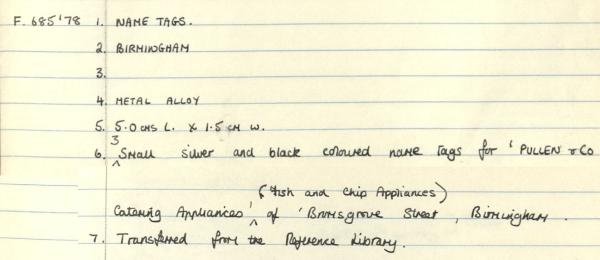 F. 685'78 1. NAME TAGS.
2. BIRMINGHAM
3.
4. METAL ALLOY
5. 5.0 CMS L. X 1.5 CM W.
6. 3 Small silver and black coloured name tags for 'PULLEN & CO
(Fish and Chip Appliances)
Catering Appliances' of 'Bromsgrove Street, Birmingham.
7. Transferred from the Reference Library.